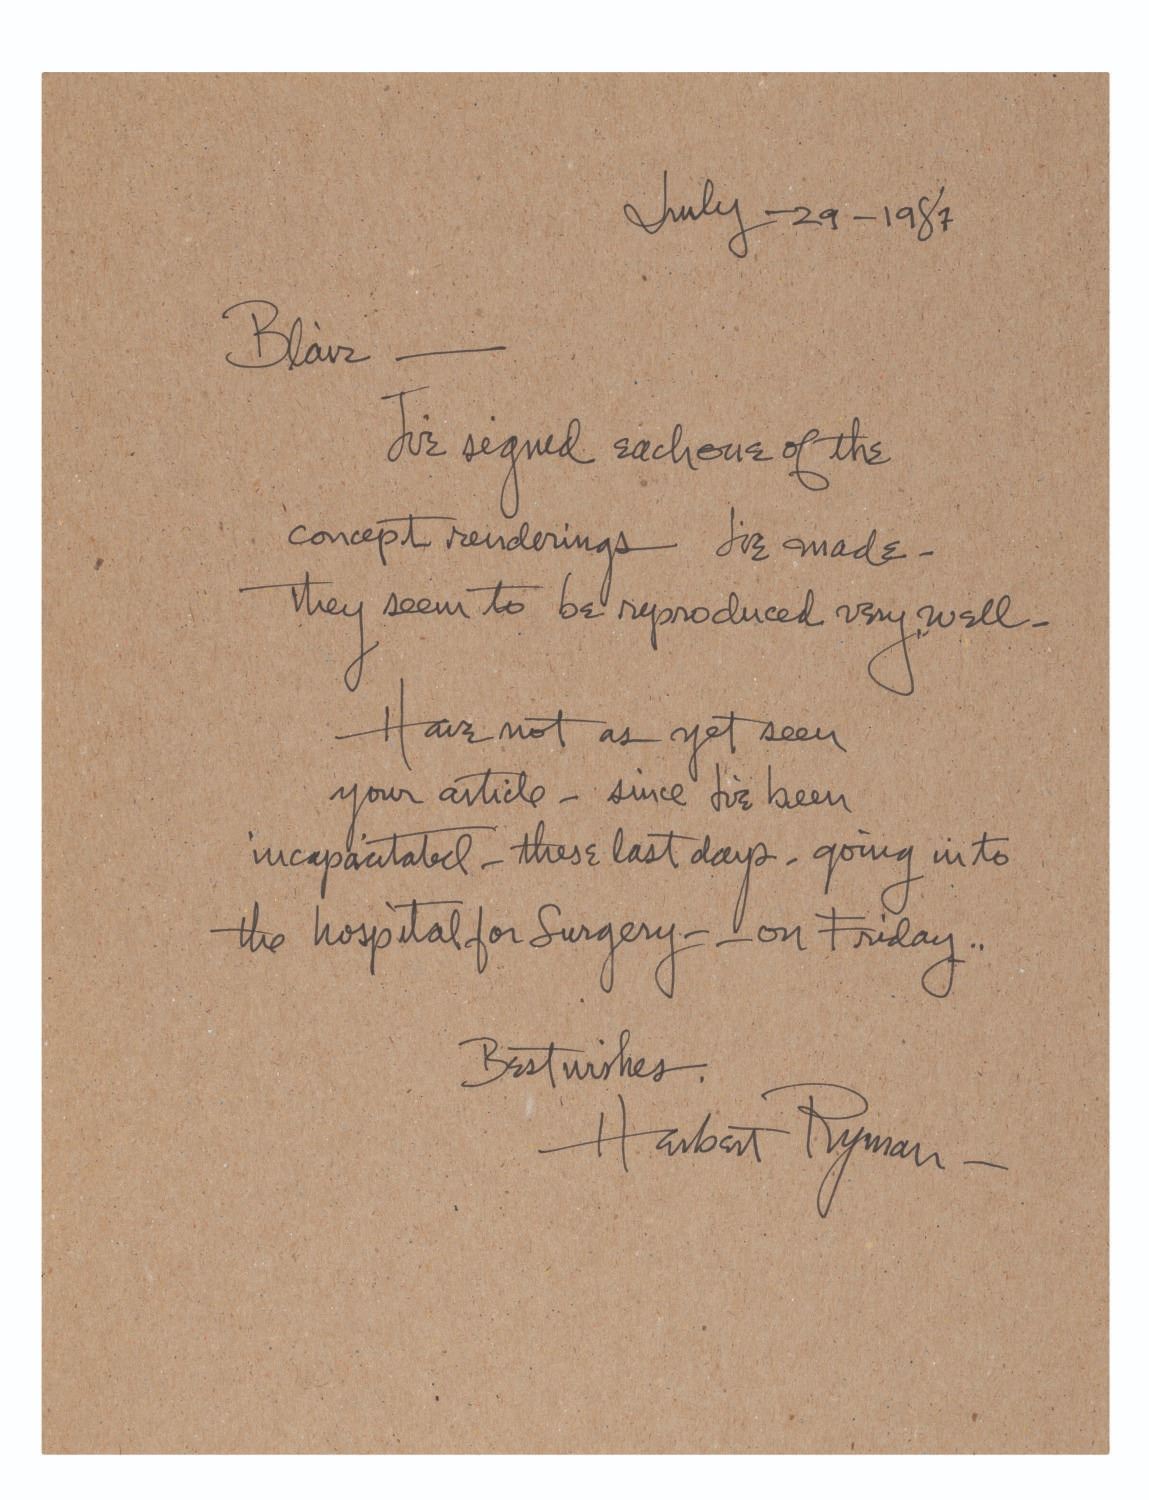 July - 29 - 1987
Blair —
I've signed each one of the
concept renderings I've made -
They seem to be reproduced very, well -
Have not as yet seen
your article - since I've been
incapacitated - these last days - going into
the hospital for Surgery - - on Friday..
Best wishes.
Herbert Ryman -